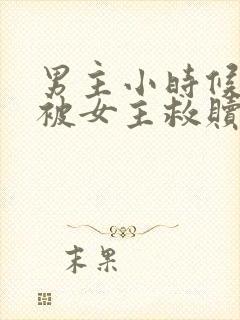 男主小時候
被女主救贖
末果